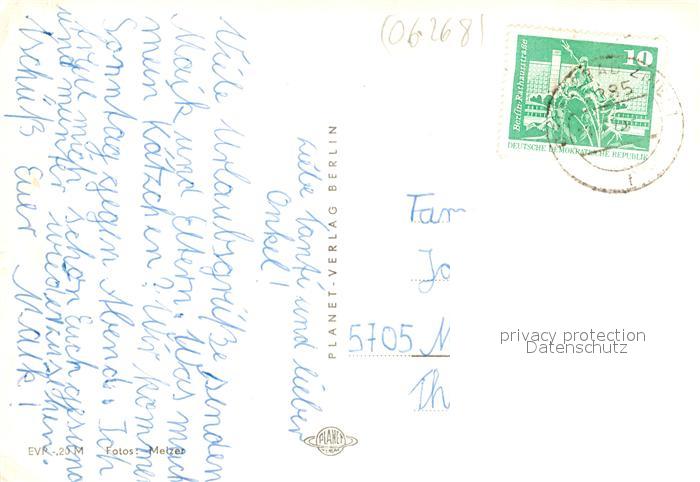 (06268)
Liebe Tante und lieber
Onkel!
Viele Urlaubsgrüße senden
Maik und Eltern. Was macht
mein Kätzchen? Wir kommen
Sonntag gegen Abend. Ich
freue mich schon Euch gesund
und munter wiederzusehen.
Tschüß Euer Maik!
EVP -,20 M Fotos: Melzer
PLANET-VERLAG BERLIN
PLANET
10
Berlin·Rathausstraße
DEUTSCHE DEMOKRATISCHE REPUBLIK
Fam
Jo
5705 M
Th
privacy protection
Datenschutz